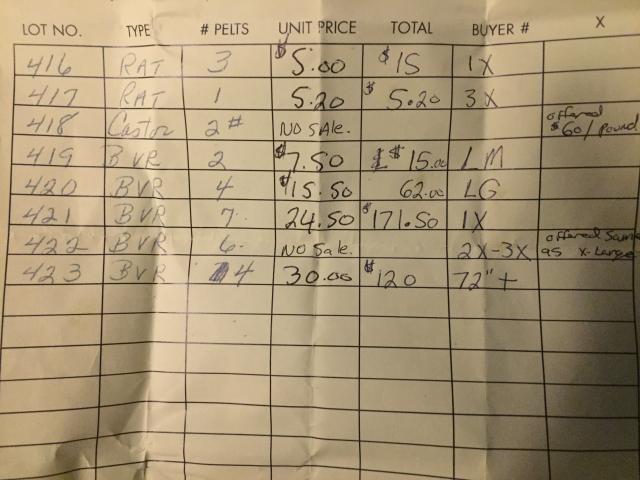 LOT NO. TYPE # PELTS UNIT PRICE TOTAL BUYER # X
416 RAT 3 $5.00 $15 1X
417 RAT 1 5.20 $5.20 3X
418 Castor 2# NO SALE. offered $60/pound
419 BVR 2 $7.50 $15.00 LM
420 BVR 4 $15.50 62.00 LG
421 BVR 7. 24.50 $171.50 1X
422 BVR 6. No Sale. 2X-3X offered Same as X-Large
423 BVR 4 30.00 $120 72"+